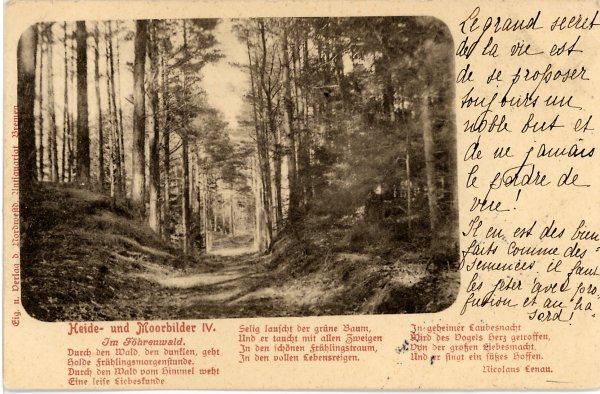 Le grand secret
de la vie est
de se proposer
toujours un
noble but et
de ne jamais
le perdre de
vue!
Il en est des bien
faits comme des
semences, il faut
les jeter avec pro-
fusion et au ha-
sard!
Eig. u. Verlag d. Nordwestd. Antiquariat, Bremen
Heide- und Moorbilder IV.
Im Föhrenwald.
Durch den Wald, den dunklen, geht
Holde Frühlingsmorgenstunde.
Durch den Wald vom Himmel weht
Eine leise Liebeskunde.
Selig lauscht der grüne Baum,
Und er taucht mit allen Zweigen
In den schönen Frühlingstraum,
In den vollen Lebensreigen.
In geheimer Laubesnacht
Wird des Vogels Herz getroffen,
Von der großen Liebesmacht,
Und er singt ein süßes Hoffen.
Nicolaus Lenau.